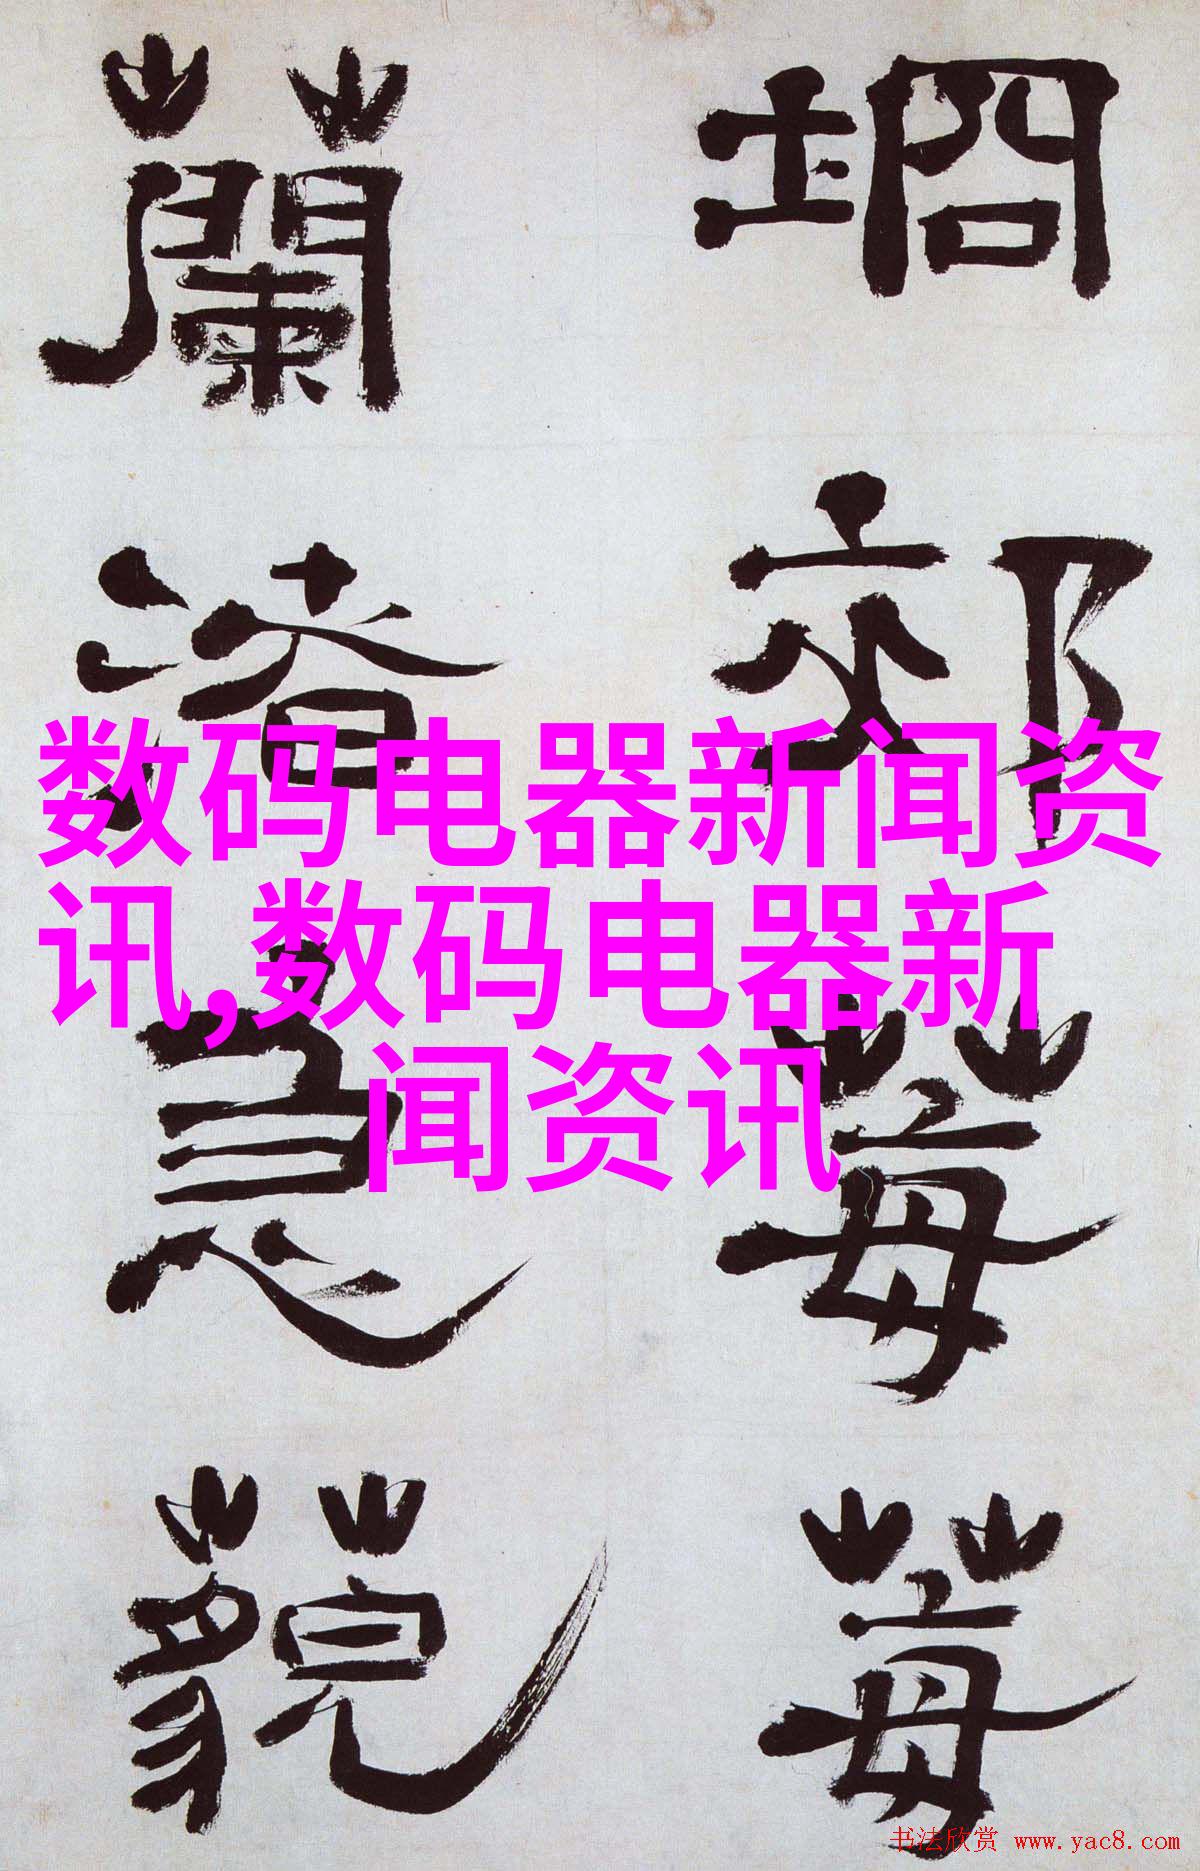 埛郊莓莓
蘭渚急藐
数码电器新闻资
讯,数码电器新
闻资讯
书法欣赏 www.yac8.com